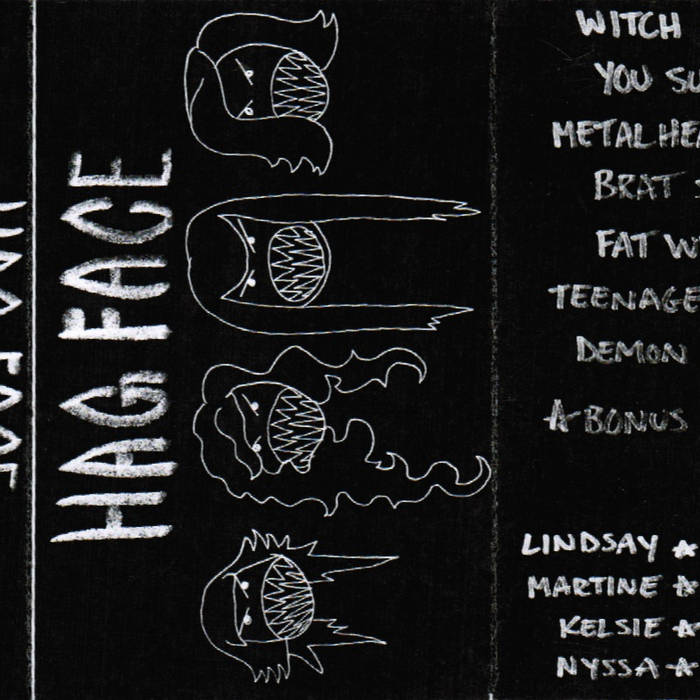 HAG FACE
HAG FACE
WITCH
YOU SU
METALHEA
BRAT
FAT W
TEENAGE
DEMON
A BONUS
LINDSAY
MARTINE
KELSIE
NYSSA